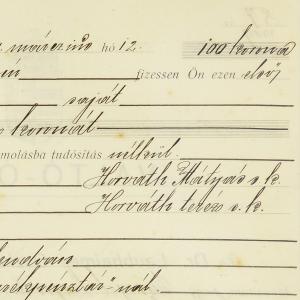 márczius hó 12. 100 korona
fizessen Ön ezen első
saját
koronát
számolásba tudósítás nélkül.
Horváth Mátyás s. k.
Horváth teréz s. k.
lendván
nál